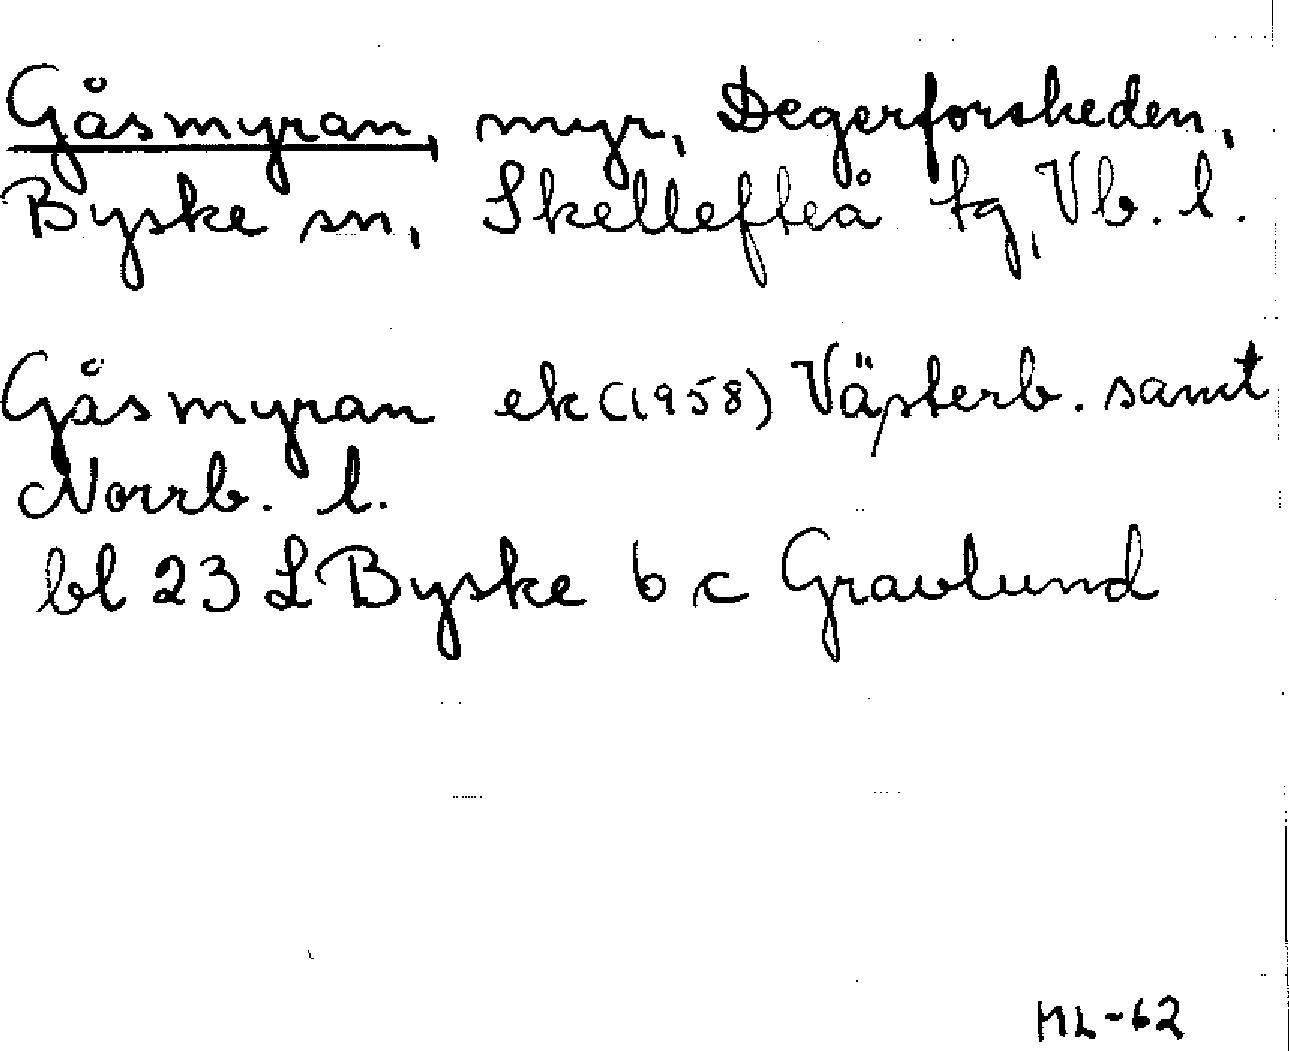 Gåsmyran, myr, Degerforsheden,
Byske sn, Skellefteå tg, Vb. l.
Gåsmyran ek (1958) Västerb. samt
Norrb. l.
bl 23 L Byske b c Gravlund
ML-62